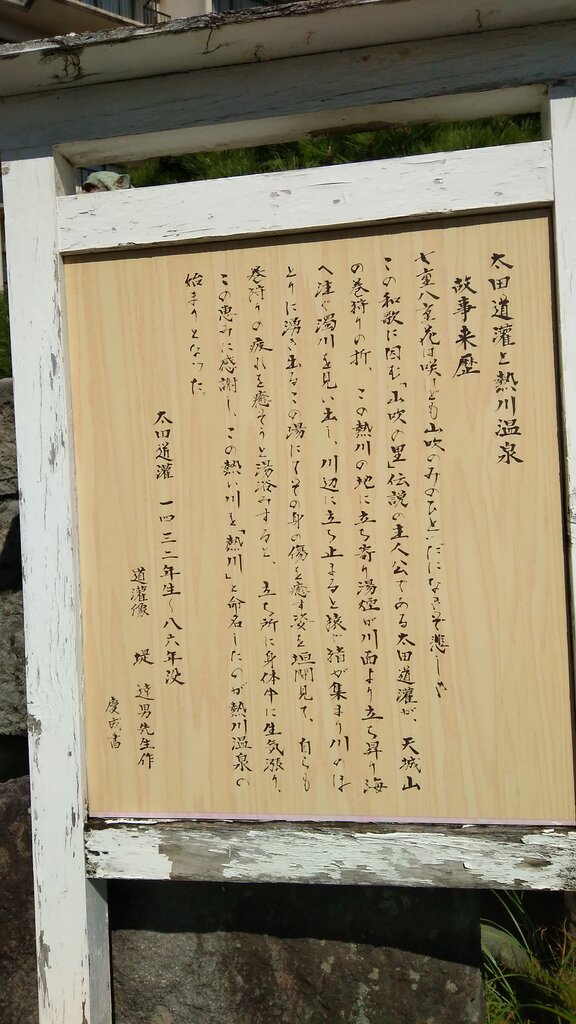 太田道灌と熱川温泉
故事来歴
七重八重花は咲けども山吹のみのひとつだになきぞ悲しき
この和歌に因む「山吹の里」伝説の主人公である太田道灌が、天城山
の巻狩りの折、この熱川の地に立ち寄り湯煙が川面より立ち昇り海
へ注ぐ濁川を見い出し、川辺に立ち止まると猿や猪が集まり川のほ
とりに湧き出るこの湯にてその身の傷を癒す姿を垣間見て、自らも
巻狩りの疲れを癒そうと湯浴みすると、立ち所に身体中に生気漲り、
この恵みに感謝し、この熱い川を「熱川」と命名したのが熱川温泉の
始まりとなった。
太田道灌 一四三二年生〜八六年没
道灌像 堤達男先生作
慶成書